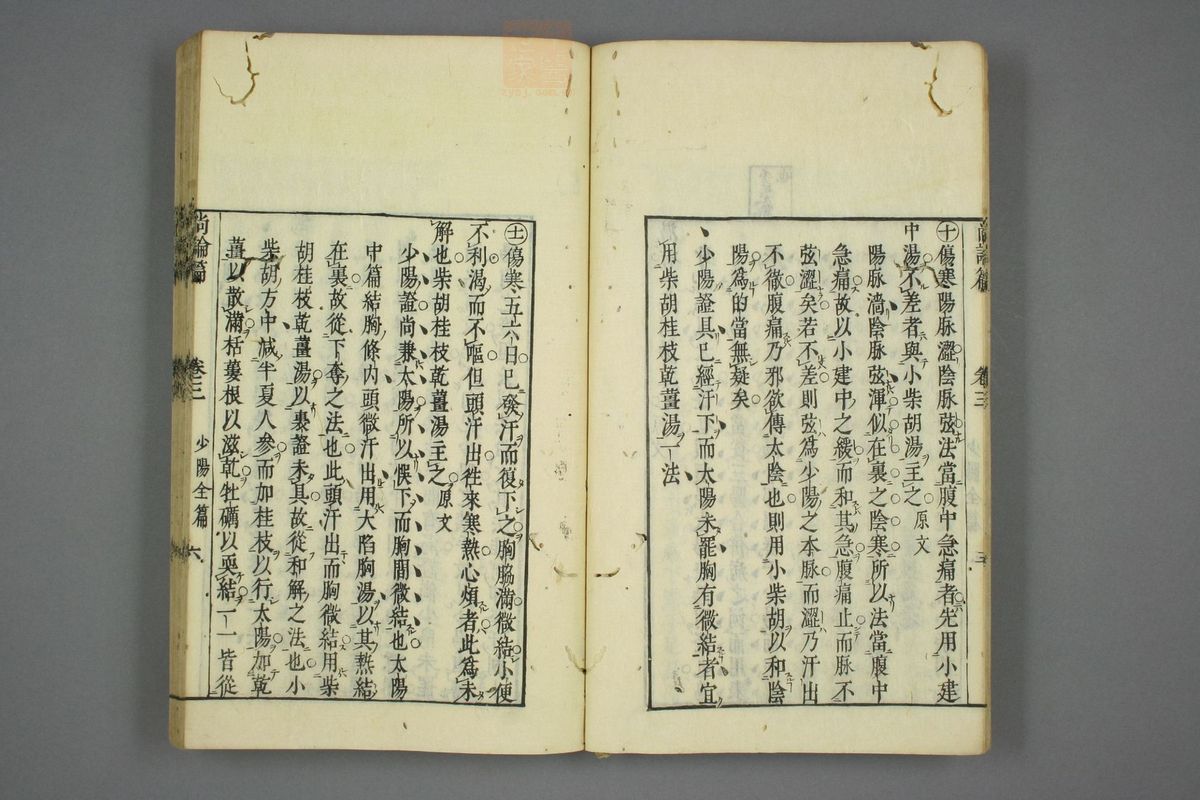 十傷寒陽脉澀陰脉弦法當腹中急痛者先用小建
中湯不差者與小柴胡湯主之原文
陽脉濇陰脉弦渾似在裏之陰寒所以法當腹中
急痛故以小建中之緩而和其急腹痛止而脉不
弦澀矣若不差則弦爲少陽之本脉而澀乃汗出
不徹腹痛乃邪欲傳太陰也則用小柴胡以和陰
陽爲的當無疑矣
少陽證具已經汗下而太陽未罷胸有微結者宜
用柴胡桂枝乾薑湯一法
卷三
𠀋傷寒五六日已發汗而復下之胸脇滿微結小便
不利渴而不嘔但頭汗出徃來寒熱心煩者此爲未
解也柴胡桂枝乾薑湯主之原文
少陽證尚兼太陽所以悞下而胸間微結也太陽
中篇結胸條内頭微汗出用大陷胸湯以其熱結
在裏故從下奪之法也此頭汗出而胸微結用柴
胡桂枝乾薑湯以裏證未具故從和解之法也小
柴胡方中減半夏人參而加桂枝以行太陽加乾
薑以散滿栝蔞根以滋乾牡礪以耎結一一皆從
尚論篇 卷三 少陽全篇 六